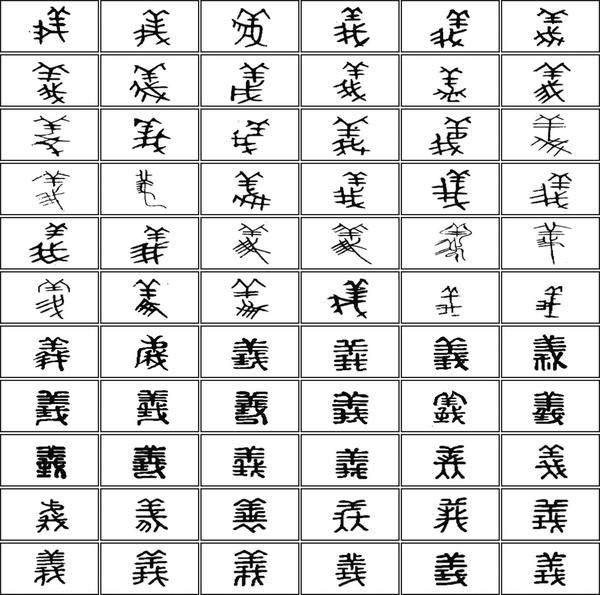 義 義 義 義 義 義
義 義 義 義 義 義
義 義 義 義 義 義
義 義 義 義 義 義
義 義 義 義 義 義
義 義 義 義 義 義
義 義 義 義 義 義
義 義 義 義 義 義
義 義 義 義 義 義
義 義 義 義 義 義
義 義 義 義 義 義